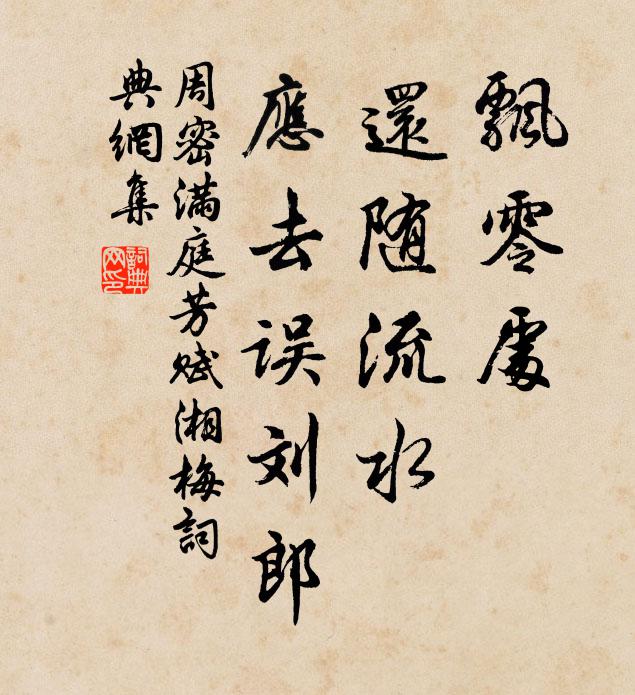 飄零處
還随流水
應去误刘郎
周密满庭芳赋湘梅詞
典網集
詞典
网印